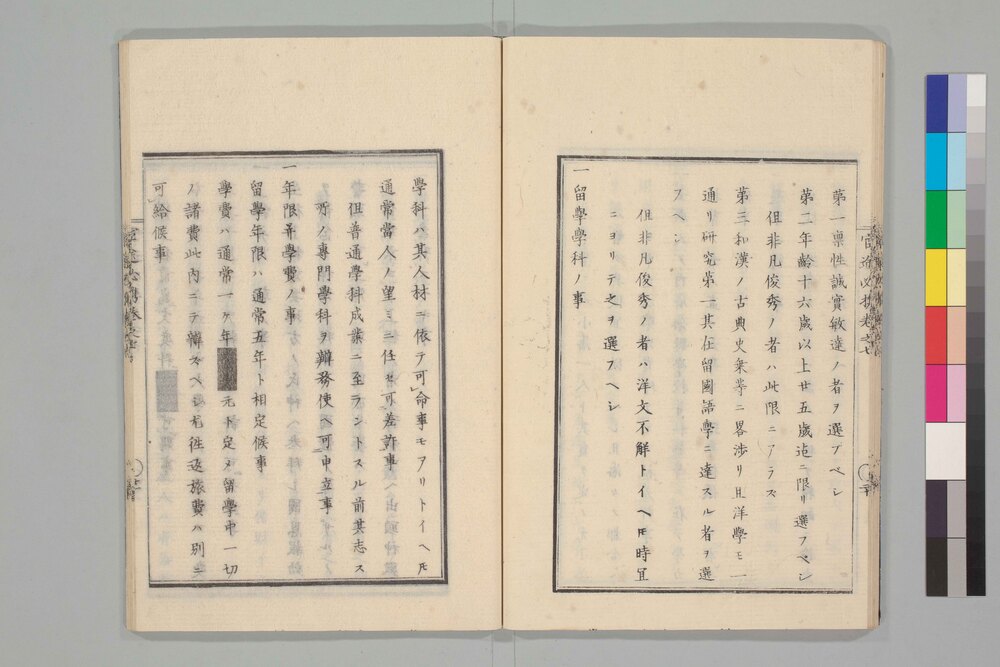 第一禀性誠實敏達ノ者ヲ選ブベシ
第二年齢十六歳以上廿五歳迠ニ限リ選フベシ
但非凡俊秀ノ者ハ此限ニアラズ
第三和漢ノ古典史乗等ニ畧渉リ且洋學モ一
通リ研究第一其在留國語學ニ達スル者ヲ選
フベシ
但非凡俊秀ノ者ハ洋文不解トイヘ𪜈時宜
ニヨリテ之ヲ選フヘシ
一留學學科ノ事
學科ハ其人材ニ依テ可命事モアリトイヘ𪜈
通常當人ノ望ミニ任セ可差許事
但普通學科成業ニ至ラントスル前其志ス
所ノ専門學科ヲ辦務使ヘ可申立事
一年限并學費ノ事
留學年限ハ通常五年ト相定候事
學費ハ通常一ヶ年 元ト定メ留學中一切
ノ諸費此内ニテ辨スベシ尤徃返旅費ハ別ニ
可給候事